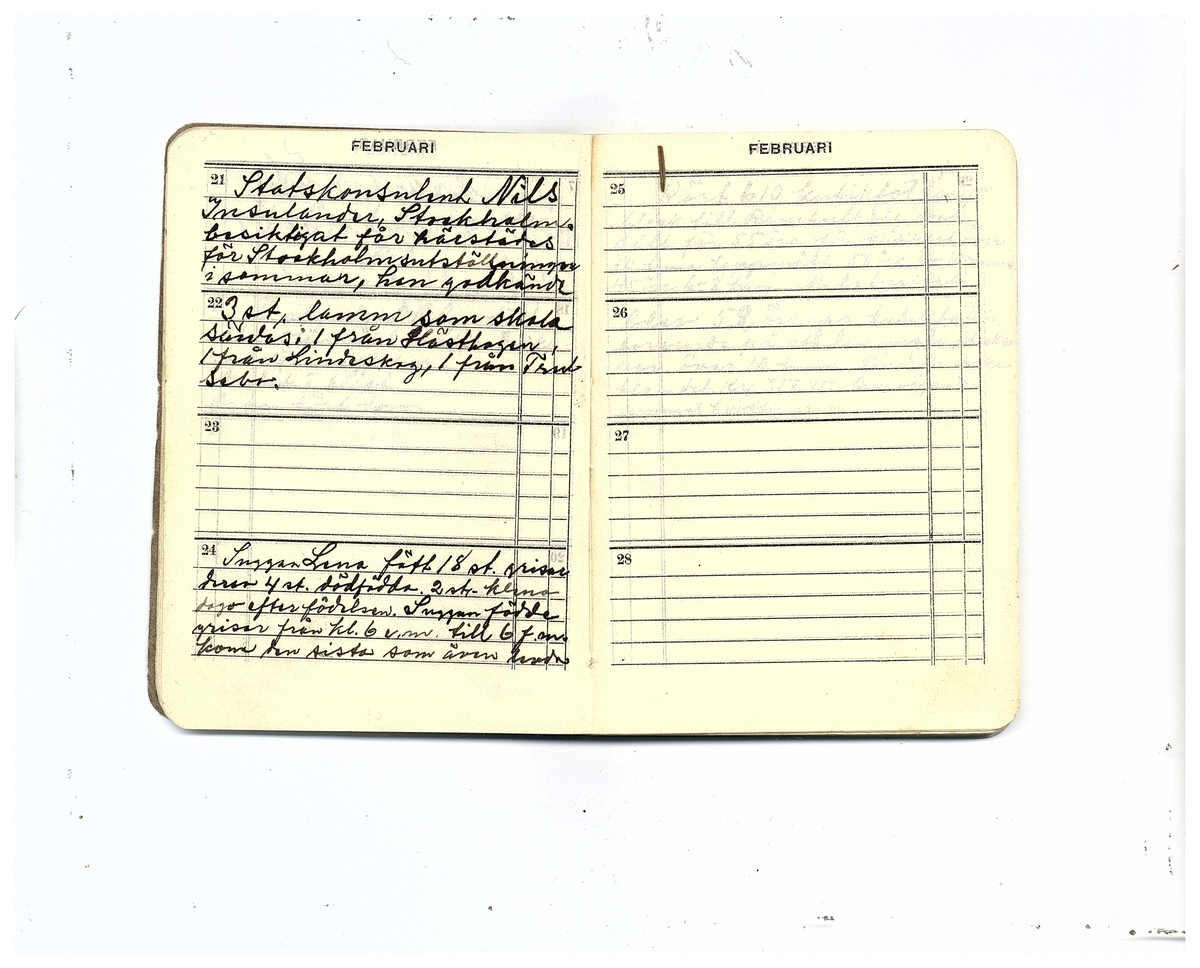 FEBRUARI
21 Statskonsulent Nils
Insulander, Stockholm.
besiktigat får härstädes
för Stockholmsutställningen
i sommar, han godkände
22 3 st, lamm som skola
sändas: 1 från Hästhagen,
1 från Lindeskog, 1 från Trul
sebo.
23
24 Suggan Lena fått 18 st. grisar
derav 4 st. dödfödda. 2 st. klena
dogo efter födelsen. Suggan födde
grisar från kl. 6 e.m. till 6 f.m.
kom den sista som även levde
FEBRUARI
25
26
27
28